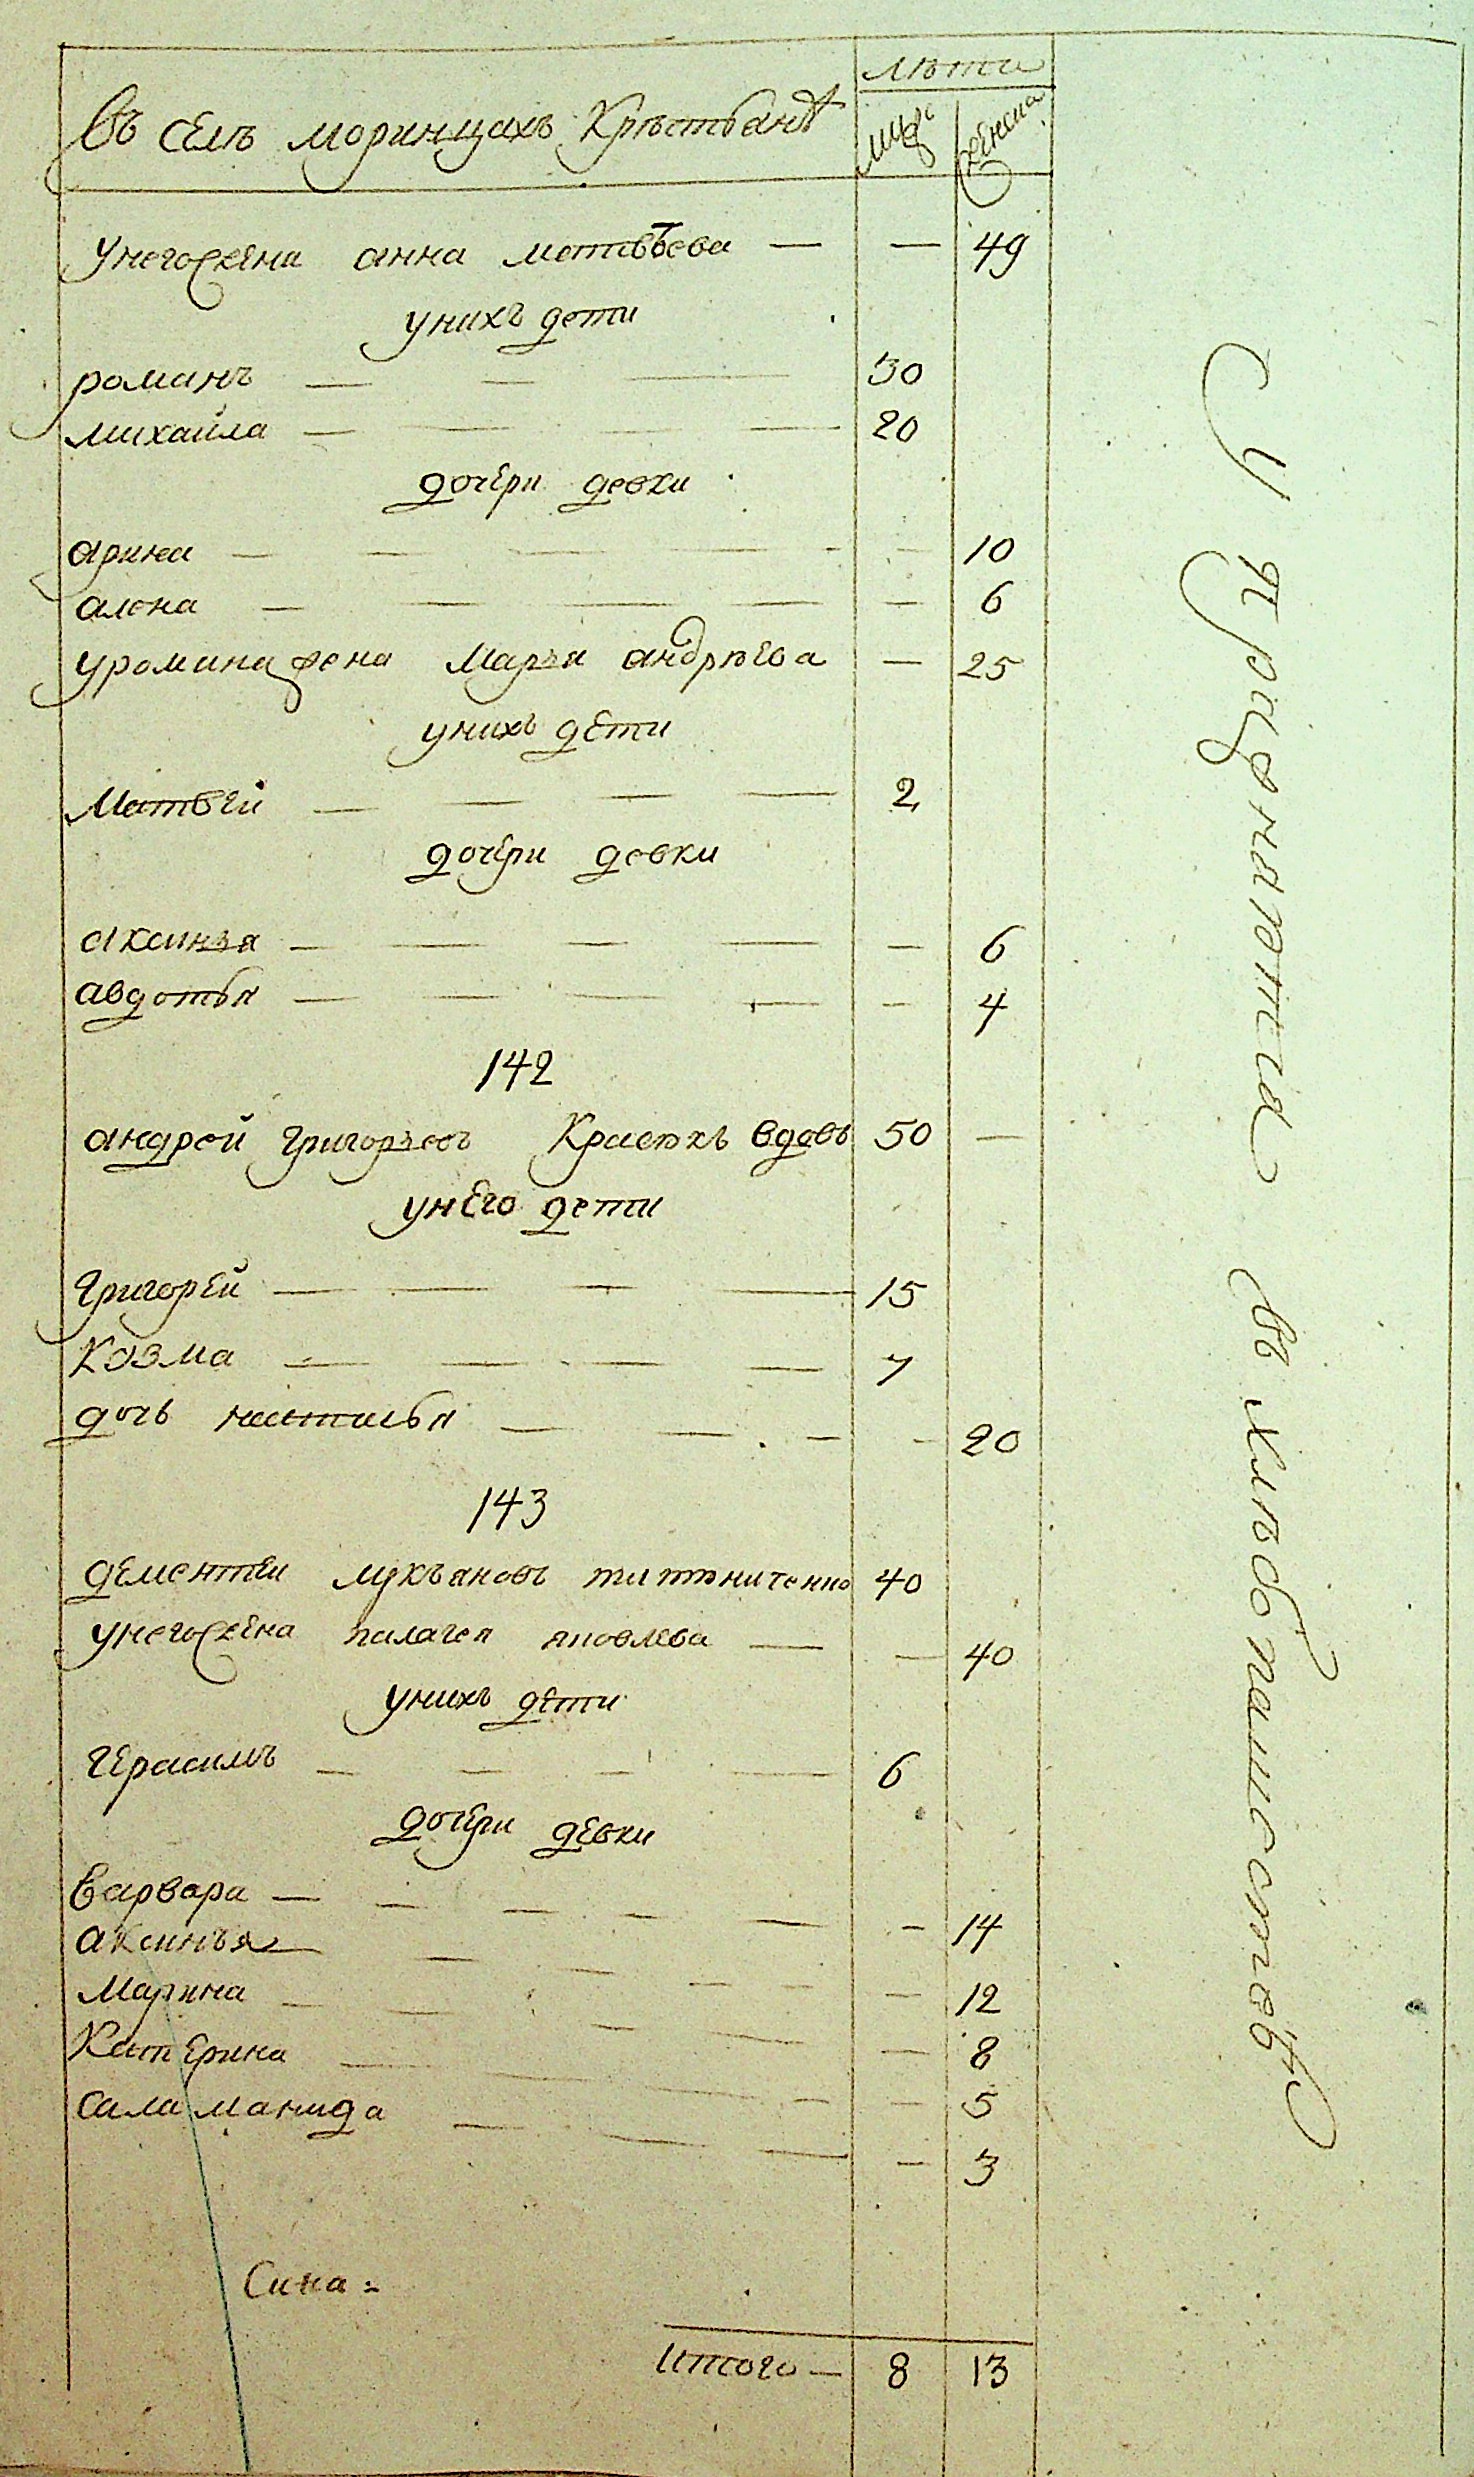 въ селѣ моринцахъ Крѣстьанѣ
лѣта
муж
женска
унегожена анна матвѣева — — 49
унихъ дети
романъ — — — 30
михайла — — — — 20
дочери девки
арина — — — — — — 10
алена — — — — — — 6
уроманажена Марья андрѣева — 25
унихъ дети
Матвей — — — — 2
дочери девки
аксинья — — — — — 6
авдотья — — — — — 4
142
андрей Григорьевъ вдовъ 50 —
унего дети
Григорей — — — — 15
Козма — — — — 7
дочь наталья — — — — 20
143
дементеи лукъяновъ 40
унегожена палагея яковлева — — 40
унихъ дети
Герасимъ — — — — 6
дочери девки
Варвара — — — — — — 14
аксинья — — — — — 12
Марина — — — — — 8
Катерина — — — — — 5
саламанида — — — — 3
Итого — 8 13
Упражняютца въ хлѣбопашествѣ